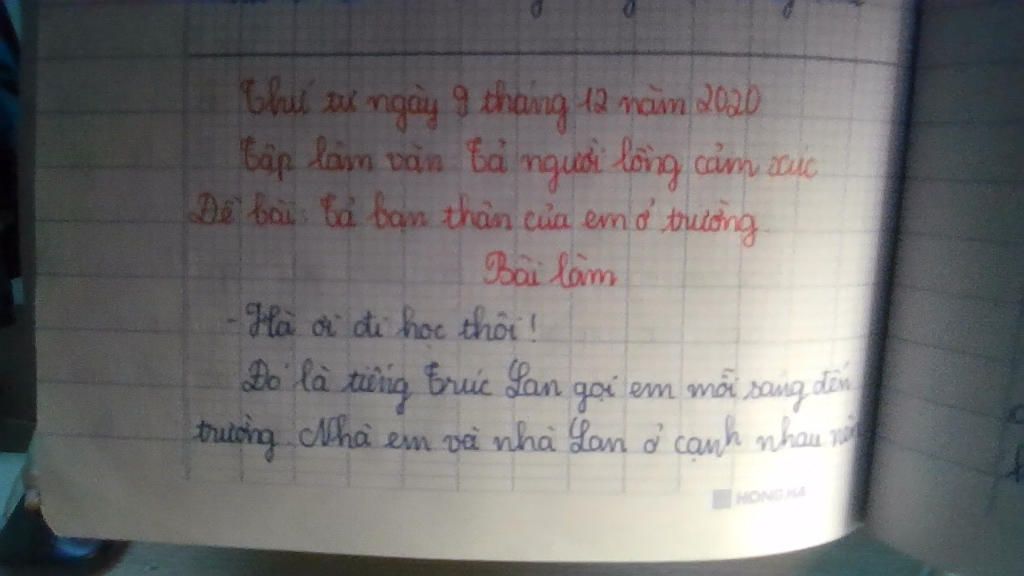 Thứ tư ngày 9 tháng 12 năm 2020
Tập làm văn Tả người lồng cảm xúc
Đề bài: Tả bạn thân của em ở trường
Bài làm
- Hà ơi đi học thôi!
Đó là tiếng Trúc Lan gọi em mỗi sáng đến
trường. Nhà em và nhà Lan ở cạnh nhau
HONG HA